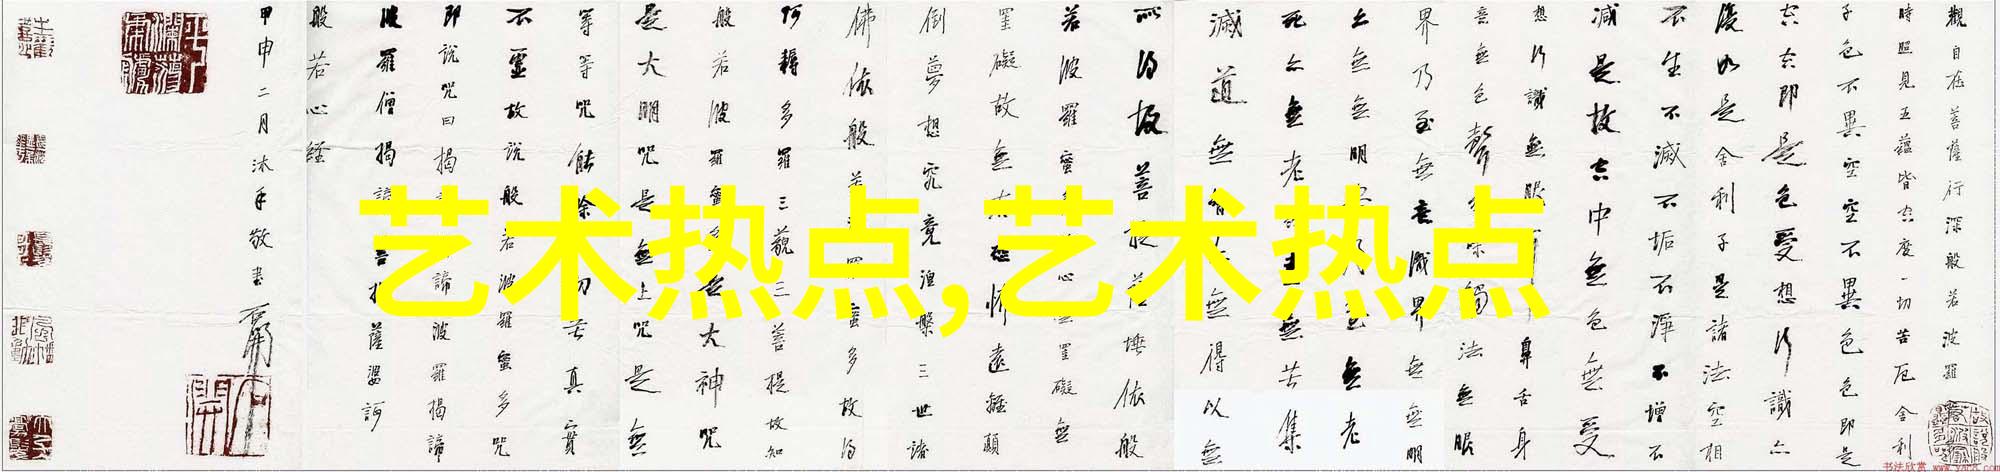 觀自在菩薩行深般若波羅
時照見五蘊皆空度一切苦厄舍利
子色不異空空不異色色即是
空空即是色受想行識亦
復如是舍利子是諸法空相
不生不滅不垢不淨不增不
減是故空中無色無受
想行識無眼
鼻舌身
意無色聲
觸法無眼
界乃至無意識界無無明
亦無無明
無老
死亦無老
無苦集
滅道無智
無得以無
所得故菩
依般
若波羅蜜
心
罣礙無
罣礙故無
遠離顛
倒夢想究竟涅槃三世諸
佛依般若
蜜多故得
阿耨多羅三藐三菩提故知
般若波羅蜜多是大神咒
是大明咒是無上咒是無
等等咒能除
切苦真實
不虛故說般若波羅蜜多咒
即說咒曰揭諦
諦波羅揭諦
波羅僧揭諦菩提薩婆訶
般若心經
甲申二月沐手敬書
艺术热点,艺术热点
书法欣赏